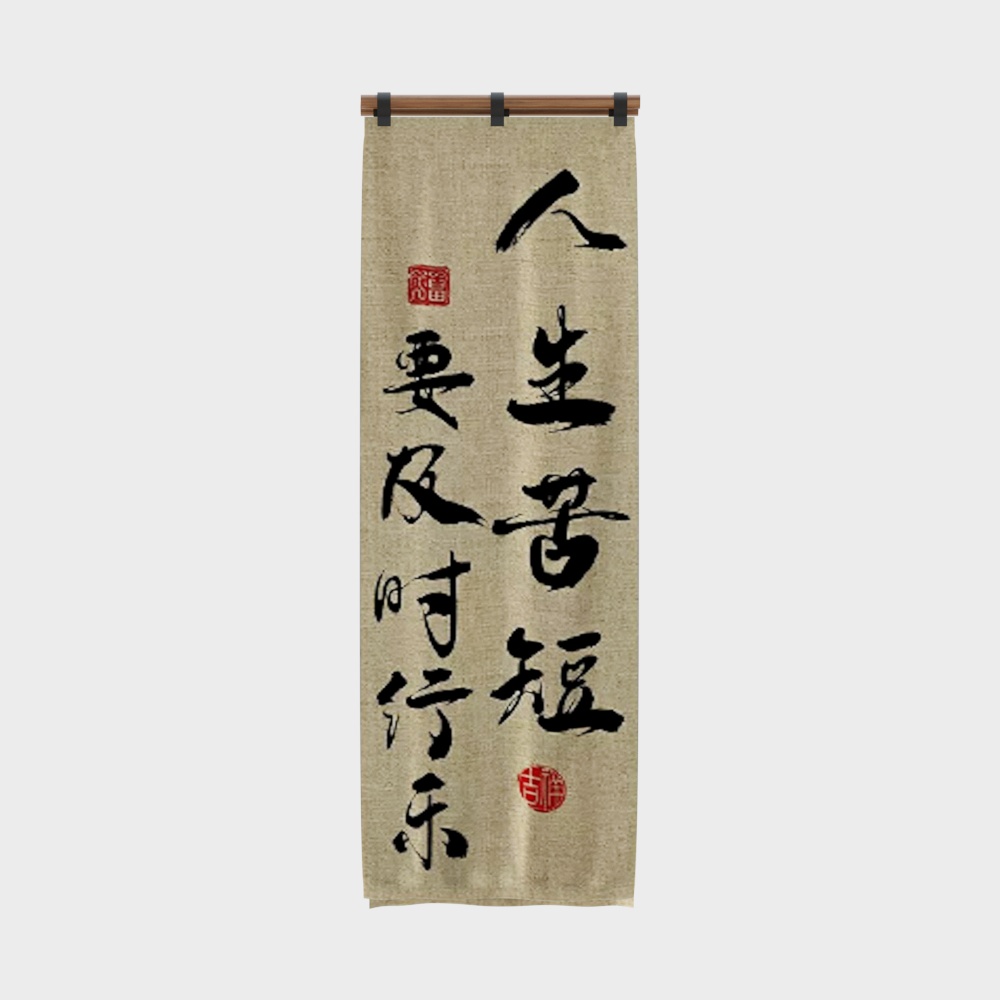 人生苦短
吉祥
要及时行乐